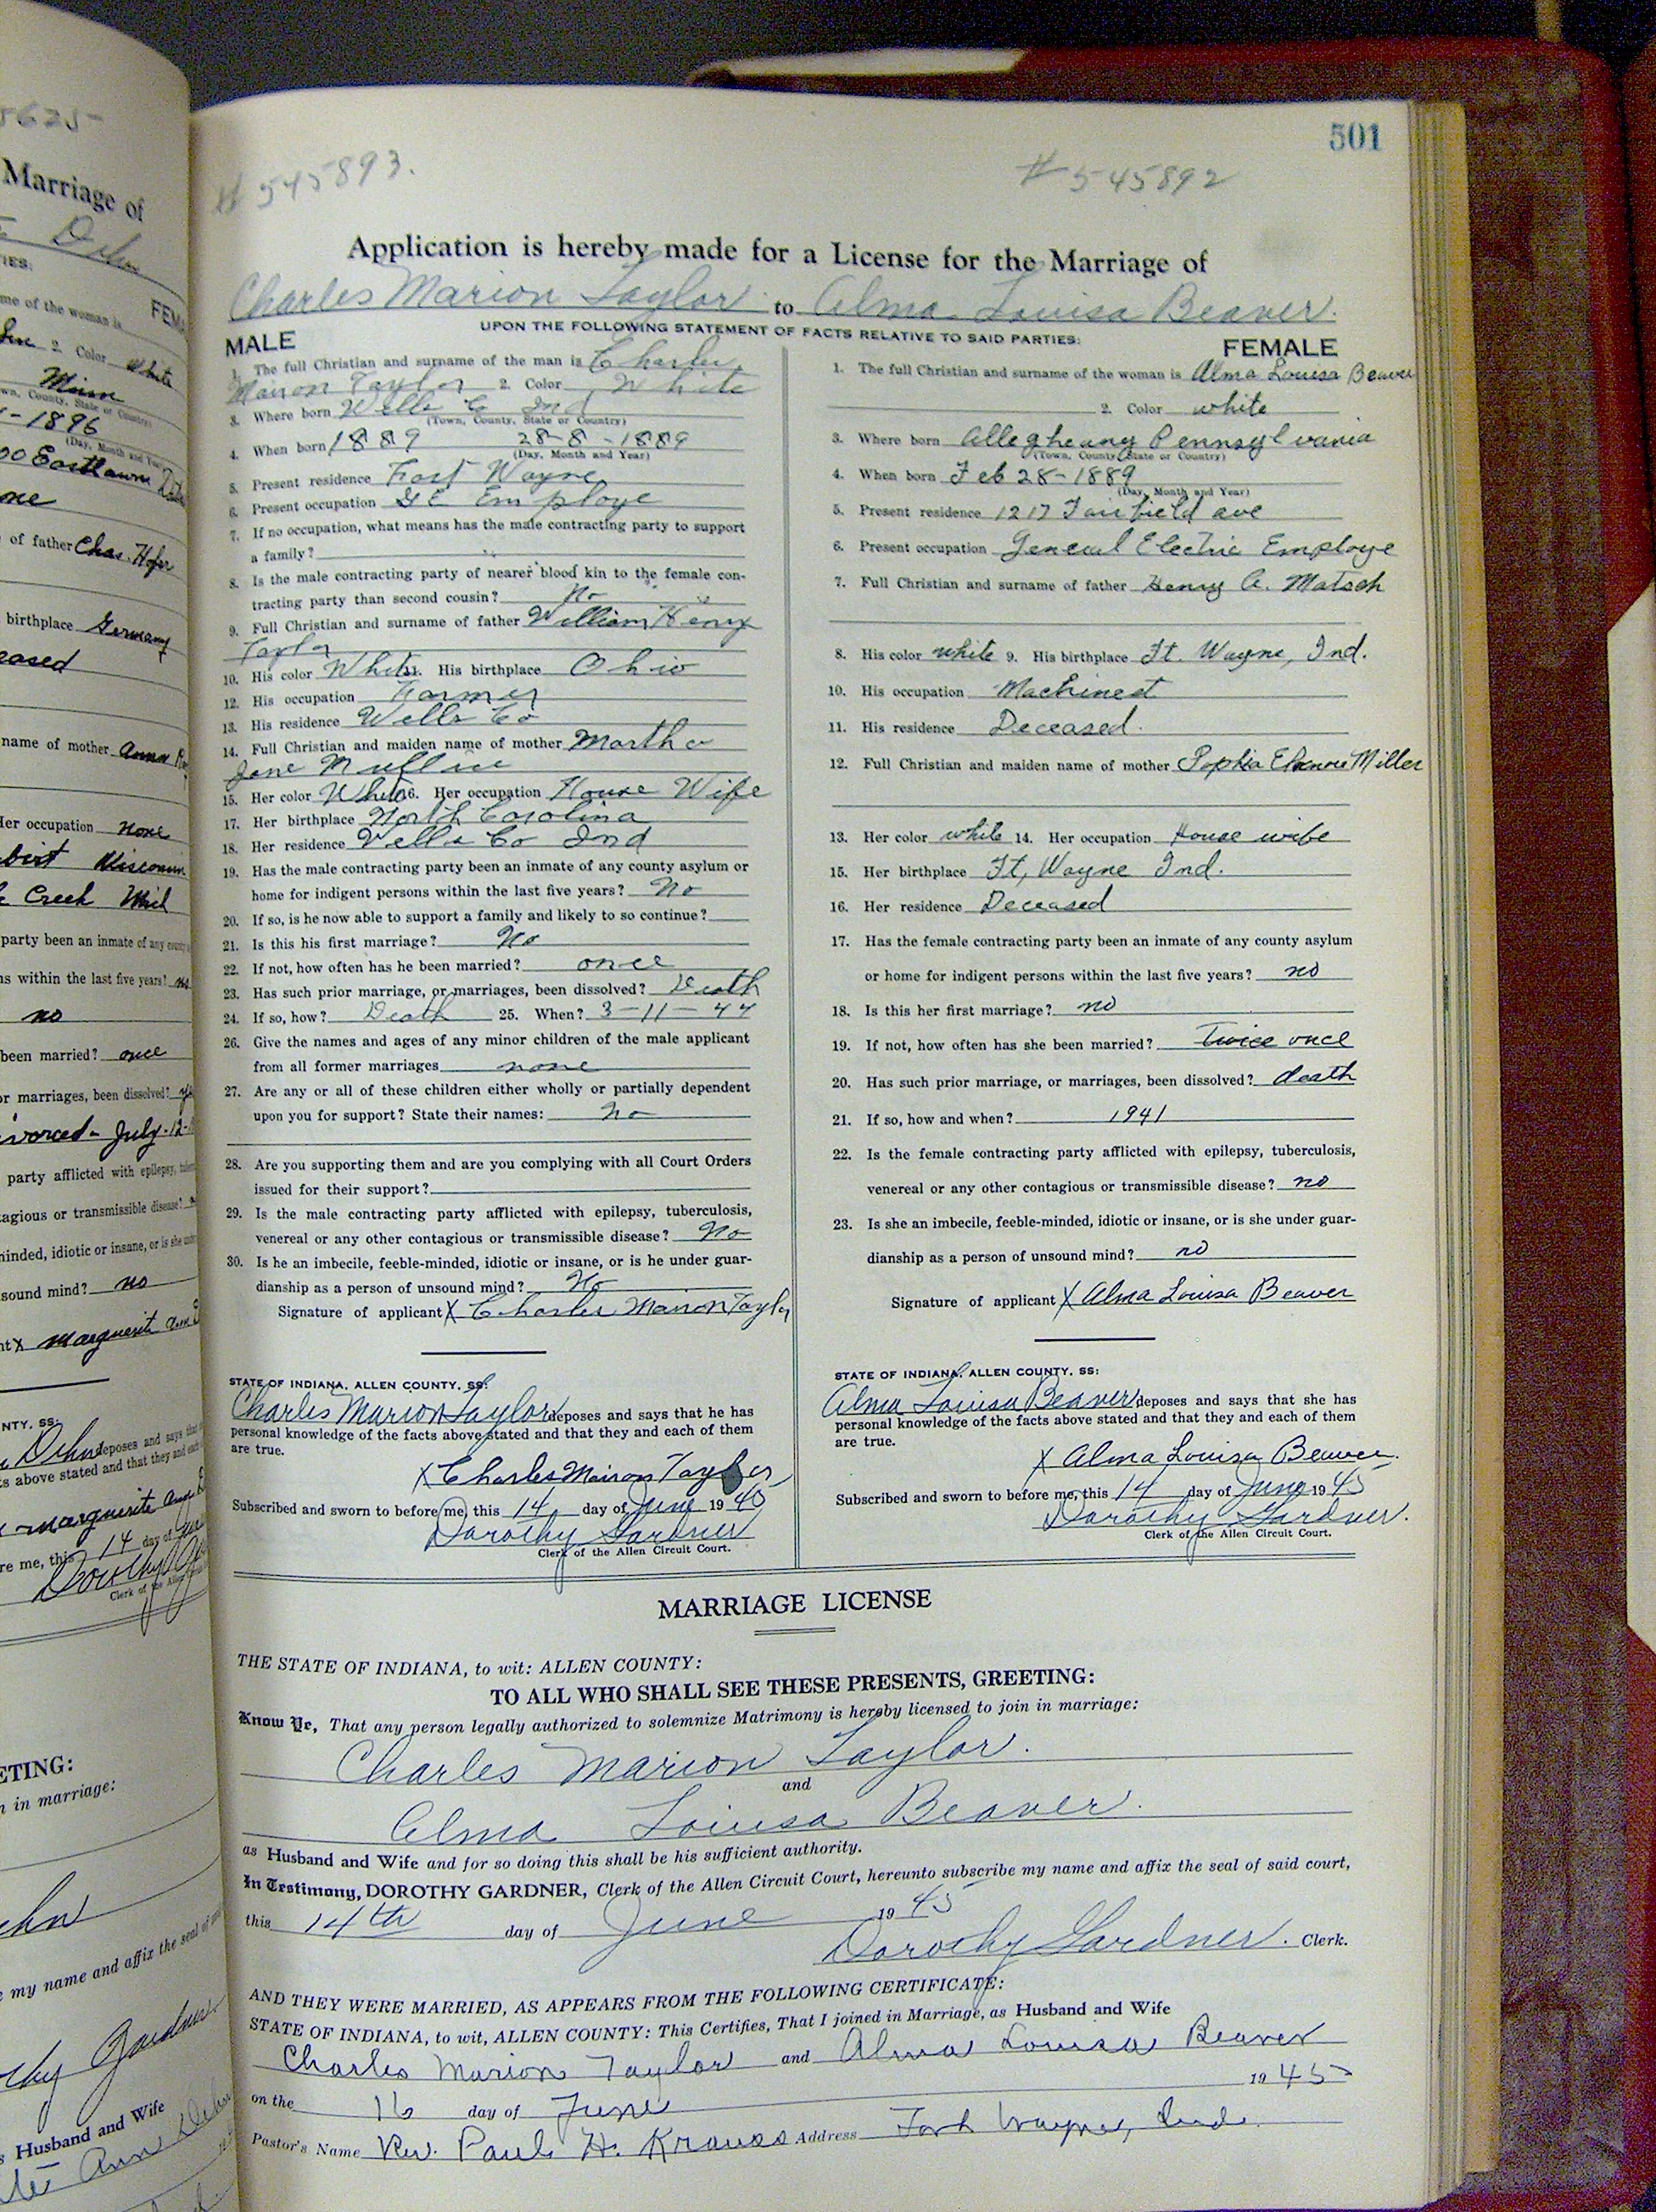 501
# 545893.
# 545892
Application is hereby made for a License for the Marriage of
Charles Marion Taylor to Alma Louisa Beaver.
UPON THE FOLLOWING STATEMENT OF FACTS RELATIVE TO SAID PARTIES:
MALE
1. The full Christian and surname of the man is Charles
Marion Taylor 2. Color White
3. Where born Wells Co Ind
(Town, County, State or Country)
4. When born 1889 28-8-1889
(Day, Month and Year)
5. Present residence Fort Wayne
6. Present occupation GE Employe
7. If no occupation, what means has the male contracting party to support
a family?
8. Is the male contracting party of nearer blood kin to the female con-
tracting party than second cousin? No
9. Full Christian and surname of father William Henry
Taylor
10. His color White 11. His birthplace Ohio
12. His occupation Farmer
13. His residence Wells Co
14. Full Christian and maiden name of mother Martha
Jane
15. Her color White 16. Her occupation House Wife
17. Her birthplace North Carolina
18. Her residence Wells Co Ind
19. Has the male contracting party been an inmate of any county asylum or
home for indigent persons within the last five years? No
20. If so, is he now able to support a family and likely to so continue?
21. Is this his first marriage? No
22. If not, how often has he been married? once
23. Has such prior marriage, or marriages, been dissolved? Death
24. If so, how? Death 25. When? 3-11-44
26. Give the names and ages of any minor children of the male applicant
from all former marriages none
27. Are any or all of these children either wholly or partially dependent
upon you for support? State their names: No
28. Are you supporting them and are you complying with all Court Orders
issued for their support?
29. Is the male contracting party afflicted with epilepsy, tuberculosis,
venereal or any other contagious or transmissible disease? No
30. Is he an imbecile, feeble-minded, idiotic or insane, or is he under guar-
dianship as a person of unsound mind? No
Signature of applicant X Charles Marion Taylor
STATE OF INDIANA, ALLEN COUNTY, SS:
Charles Marion Taylor deposes and says that he has
personal knowledge of the facts above stated and that they and each of them
are true.
X Charles Marion Taylor
Subscribed and sworn to before me, this 14 day of June 1945
Dorothy Gardner
Clerk of the Allen Circuit Court.
FEMALE
1. The full Christian and surname of the woman is Alma Louisa Beaver
2. Color white
3. Where born Allegheany Pennsylvania
(Town, County, State or Country)
4. When born Feb 28-1889
(Day, Month and Year)
5. Present residence 1217 Fairfield ave
6. Present occupation General Electric Employe
7. Full Christian and surname of father Henry C. Matsch
8. His color white 9. His birthplace Ft. Wayne, Ind.
10. His occupation Machinest
11. His residence Deceased.
12. Full Christian and maiden name of mother Sophia Elenore Miller
13. Her color white 14. Her occupation House wife
15. Her birthplace Ft, Wayne Ind.
16. Her residence Deceased
17. Has the female contracting party been an inmate of any county asylum
or home for indigent persons within the last five years? no
18. Is this her first marriage? no
19. If not, how often has she been married? Twice once
20. Has such prior marriage, or marriages, been dissolved? death
21. If so, how and when? 1941
22. Is the female contracting party afflicted with epilepsy, tuberculosis,
venereal or any other contagious or transmissible disease? no
23. Is she an imbecile, feeble-minded, idiotic or insane, or is she under guar-
dianship as a person of unsound mind? no
Signature of applicant X Alma Louisa Beaver
STATE OF INDIANA, ALLEN COUNTY, SS:
Alma Louisa Beaver deposes and says that she has
personal knowledge of the facts above stated and that they and each of them
are true.
X Alma Louisa Beaver.
Subscribed and sworn to before me, this 14 day of June 1945
Dorothy Gardner.
Clerk of the Allen Circuit Court.
MARRIAGE LICENSE
THE STATE OF INDIANA, to wit: ALLEN COUNTY:
TO ALL WHO SHALL SEE THESE PRESENTS, GREETING:
Know Ye, That any person legally authorized to solemnize Matrimony is hereby licensed to join in marriage:
Charles Marion Taylor.
and
Alma Louisa Beaver.
as Husband and Wife and for so doing this shall be his sufficient authority.
In Testimony, DOROTHY GARDNER, Clerk of the Allen Circuit Court, hereunto subscribe my name and affix the seal of said court,
this 14th day of June 1945
Dorothy Gardner. Clerk.
AND THEY WERE MARRIED, AS APPEARS FROM THE FOLLOWING CERTIFICATE:
STATE OF INDIANA, to wit, ALLEN COUNTY: This Certifies, That I joined in Marriage, as Husband and Wife
Charles Marion Taylor and Alma Louisa Beaver
on the 16 day of June 1945
Pastor's Name Rev. Paul H. Krauss Address Fort Wayne, Ind.